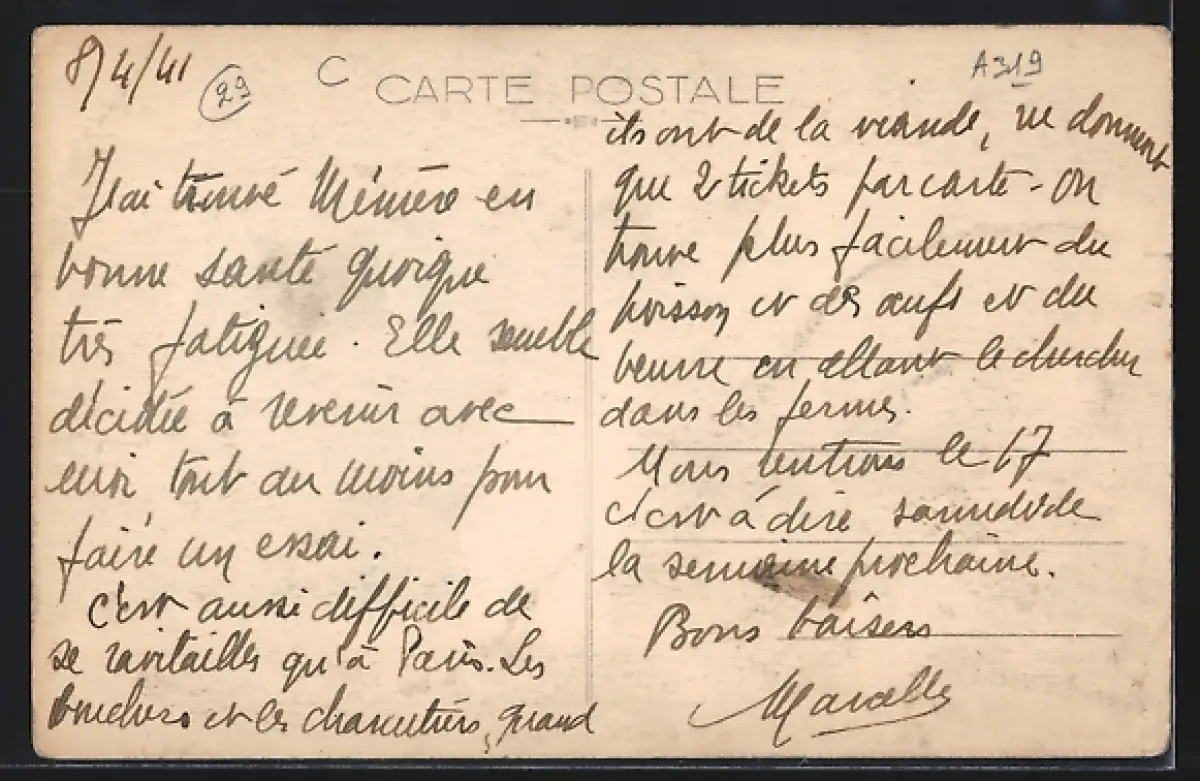 8/4/41
29
C
CARTE POSTALE
A319
J'ai trouvé Mémère en
bonne santé quoique
très fatiguée. Elle semble
décidée à revenir avec
moi tout au moins pour
faire un essai.
C'est aussi difficile de
se ravitailler qu'à Paris. Les
bouchers et les charcutiers, quand
ils ont de la viande, ne donnent
que 2 tickets par carte - On
trouve plus facilement du
poisson et des œufs et du
beurre en allant le chercher
dans les fermes.
Nous rentrons le 17
c'est à dire samedi de
la semaine prochaine.
Bons baisers
Marcelle